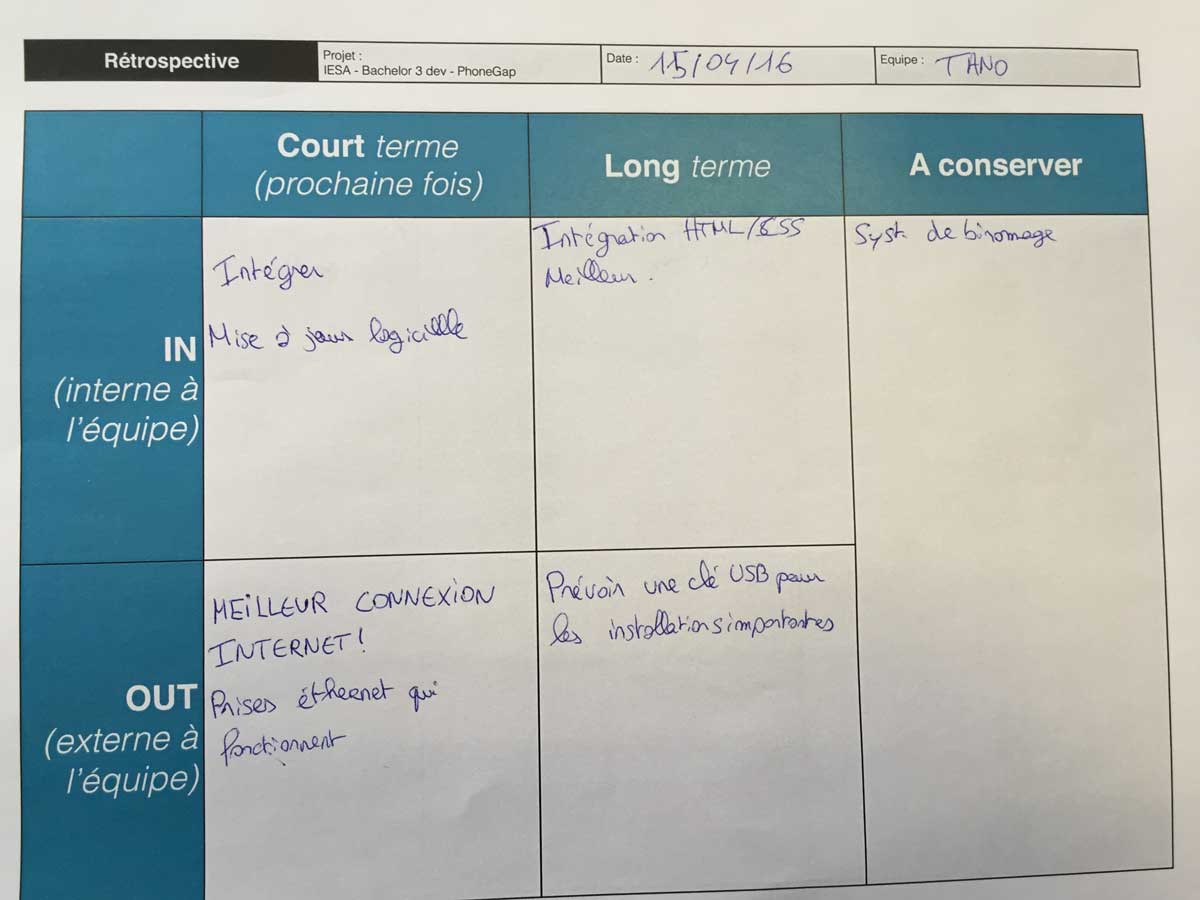 Rétrospective
Projet :
IESA - Bachelor 3 dev - PhoneGap
Date : 15/04/16
Equipe : TANO
Court terme
(prochaine fois)
Long terme
A conserver
IN
(interne à
l'équipe)
Intégrer
Mise à jour logicielle
Intégration HTML/CSS
Meilleur.
Syst. de binomage
OUT
(externe à
l'équipe)
MEILLEUR CONNEXION
INTERNET!
Prises éthernet qui
fonctionnent
Prévoir une clé USB pour
les installations importantes